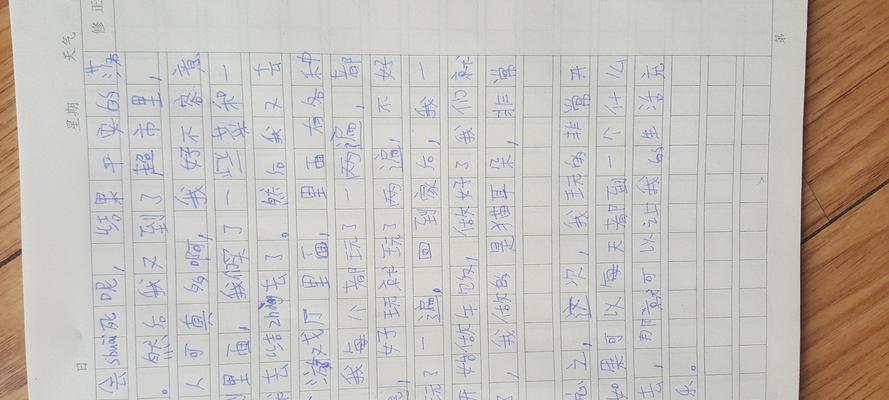 日 星期 天气
修正
会shuāi死呢，结果平安的落
。然后我又到了超市里，
人可真多啊，我好不容意
里面，我们买了一些菜和一
去结zhàng去了。然后我又去
游戏厅里面，里面有各种
我每个都玩了一两遍，都
好玩就玩了两遍，不好
玩了一遍。回到家后，我一
开始做午饭，做好了我们就
了，我做的是猫耳朵，非常
这次，我玩的非常开
如果可以每天都到一个什么
去，那就可以让我的生活充
乐。
第